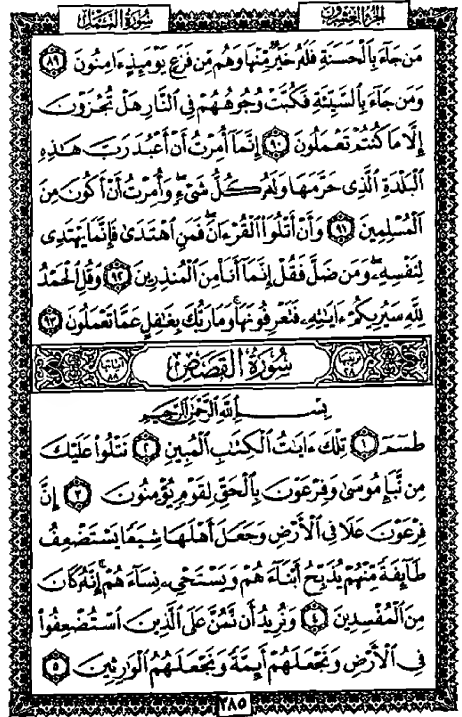 سُورَةُ النَّمْلِ الجُزْءُ العِشْرُونَ
مَن جَآءَ بِالْحَسَنَةِ فَلَهُۥ خَيْرٌ مِّنْهَا وَهُم مِّن فَزَعٍ يَوْمَئِذٍ ءَامِنُونَ ٨٩
وَمَن جَآءَ بِالسَّيِّئَةِ فَكُبَّتْ وُجُوهُهُمْ فِى النَّارِ هَلْ تُجْزَوْنَ
إِلَّا مَا كُنتُمْ تَعْمَلُونَ ٩٠ إِنَّمَآ أُمِرْتُ أَنْ أَعْبُدَ رَبَّ هَٰذِهِ
الْبَلْدَةِ الَّذِى حَرَّمَهَا وَلَهُۥ كُلُّ شَىْءٍ وَأُمِرْتُ أَنْ أَكُونَ مِنَ
الْمُسْلِمِينَ ٩١ وَأَنْ أَتْلُوَا۟ الْقُرْءَانَ فَمَنِ اهْتَدَىٰ فَإِنَّمَا يَهْتَدِى
لِنَفْسِهِۦ وَمَن ضَلَّ فَقُلْ إِنَّمَآ أَنَا۠ مِنَ الْمُنذِرِينَ ٩٢ وَقُلِ الْحَمْدُ
لِلَّهِ سَيُرِيكُمْ ءَايَٰتِهِۦ فَتَعْرِفُونَهَا وَمَا رَبُّكَ بِغَٰفِلٍ عَمَّا تَعْمَلُونَ ٩٣
ترتيبها ٢٨ سُورَةُ القَصَصِ آياتها ٨٨
بِسْمِ اللَّهِ الرَّحْمَٰنِ الرَّحِيمِ
طسٓمٓ ١ تِلْكَ ءَايَٰتُ الْكِتَٰبِ الْمُبِينِ ٢ نَتْلُوا۟ عَلَيْكَ
مِن نَّبَإِ مُوسَىٰ وَفِرْعَوْنَ بِالْحَقِّ لِقَوْمٍ يُؤْمِنُونَ ٣ إِنَّ
فِرْعَوْنَ عَلَا فِى الْأَرْضِ وَجَعَلَ أَهْلَهَا شِيَعًا يَسْتَضْعِفُ
طَآئِفَةً مِّنْهُمْ يُذَبِّحُ أَبْنَآءَهُمْ وَيَسْتَحْىِۦ نِسَآءَهُمْ إِنَّهُۥ كَانَ
مِنَ الْمُفْسِدِينَ ٤ وَنُرِيدُ أَن نَّمُنَّ عَلَى الَّذِينَ اسْتُضْعِفُوا۟
فِى الْأَرْضِ وَنَجْعَلَهُمْ أَئِمَّةً وَنَجْعَلَهُمُ الْوَٰرِثِينَ ٥
٣٨٥